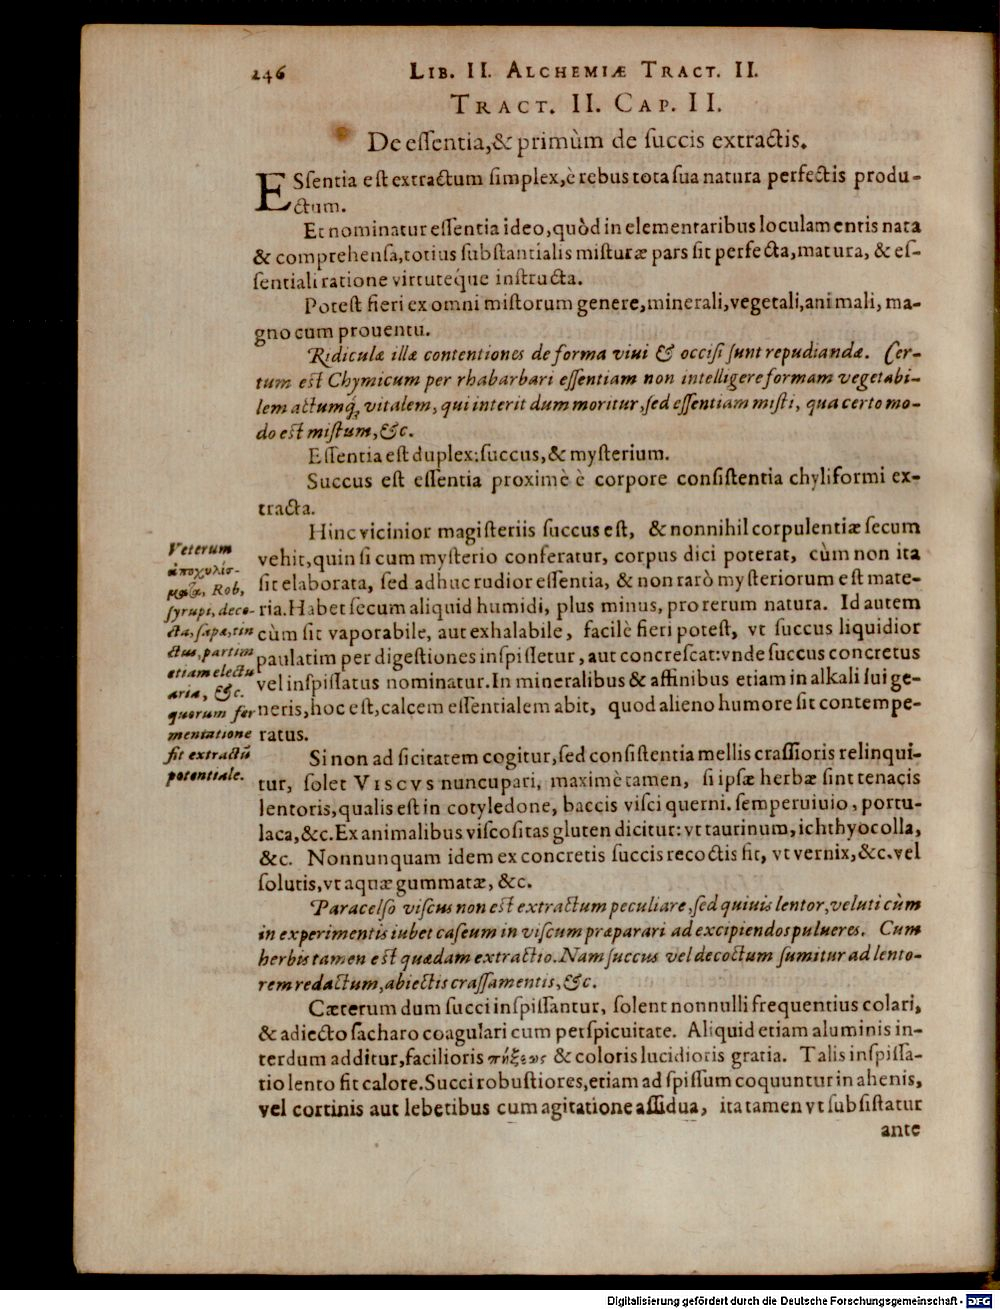 246 LIB. II. ALCHEMIÆ TRACT. II.
TRACT. II. CAP. II.
De eſſentia,& primùm de ſuccis extractis.
ESſentia eſt extractum ſimplex,è rebus tota ſua natura perfectis produ-
ctum.
Et nominatur eſſentia ideo,quòd in elementaribus loculamentis nata
& comprehenſa,totius ſubſtantialis miſturæ pars ſit perfecta,matura, & eſ-
ſentiali ratione virtuteq́ue inſtructa.
Poteſt fieri ex omni miſtorum genere,minerali,vegetali,animali, ma-
gno cum prouentu.
Ridiculæ illæ contentiones de forma viui & occiſi ſunt repudiandæ. Cer-
tum eſt Chymicum per rhabarbari eſſentiam non intelligere formam vegetabi-
lem actumq́; vitalem, qui interit dum moritur,ſed eſſentiam miſti, qua certo mo-
do eſt miſtum,&c.
Eſſentia eſt duplex:ſuccus,& myſterium.
Succus eſt eſſentia proximè è corpore conſiſtentia chyliformi ex-
tracta.
Hinc vicinior magiſteriis ſuccus eſt, & nonnihil corpulentiæ ſecum
vehit,quin ſi cum myſterio conferatur, corpus dici poterat, cùm non ita
ſit elaborata, ſed adhuc rudior eſſentia, & non rarò myſteriorum eſt mate-
ria.Habet ſecum aliquid humidi, plus minus, pro rerum natura. Id autem
cùm ſit vaporabile, aut exhalabile, facilè fieri poteſt, vt ſuccus liquidior
paulatim per digeſtiones inſpiſſetur, aut concreſcat:vnde ſuccus concretus
vel inſpiſſatus nominatur.In mineralibus & affinibus etiam in alkali ſui ge-
neris,hoc eſt,calcem eſſentialem abit, quod alieno humore ſit contempe-
ratus.
Veterum
ἀποχυλίσ-
ματα, Rob,
ſyrupi, deco-
cta, ſapæ, tin
ctus, partim
etiam electu
aria, &c.
quorum fer
mentatione
fit extractũ
potentiale.
Si non ad ſicitatem cogitur,ſed conſiſtentia mellis craſſioris relinqui-
tur, ſolet VISCVS nuncupari, maximè tamen, ſi ipſæ herbæ ſint tenacis
lentoris,qualis eſt in cotyledone, baccis viſci querni. ſemperuiuio, portu-
laca,&c.Ex animalibus viſcoſitas gluten dicitur: vt taurinum, ichthyocolla,
&c. Nonnunquam idem ex concretis ſuccis recoctis fit, vt vernix,&c.vel
ſolutis,vt aquæ gummatæ, &c.
Paracelſo viſcus non eſt extractum peculiare,ſed quiuis lentor,veluti cùm
in experimentis iubet caſeum in viſcum præparari ad excipiendos pulueres. Cum
herbis tamen eſt quædam extractio.Nam ſuccus vel decoctum ſumitur ad lento-
rem redactum,abiectis craſſamentis,&c.
Cæterum dum ſucci inſpiſſantur, ſolent nonnulli frequentius colari,
& adiecto ſacharo coagulari cum perſpicuitate. Aliquid etiam aluminis in-
terdum additur,facilioris πήξεως & coloris lucidioris gratia. Talis inſpiſſa-
tio lento fit calore.Succi robuſtiores,etiam ad ſpiſſum coquuntur in ahenis,
vel cortinis aut lebetibus cum agitatione aſſidua, ita tamen vt ſubſiſtatur
ante
Digitalisierung gefördert durch die Deutsche Forschungsgemeinschaft - DFG